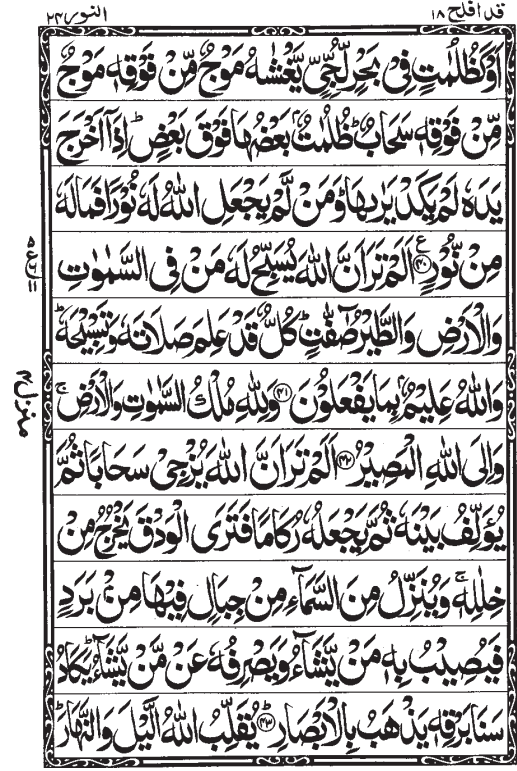 قد افلح ۱۸
النور ۲۴
اَوْ كَظُلُمٰتٍ فِیْ بَحْرٍ لُّجِّیٍّ یَّغْشٰىهُ مَوْجٌ مِّنْ فَوْقِهٖ مَوْجٌ
مِّنْ فَوْقِهٖ سَحَابٌؕ ظُلُمٰتٌۢ بَعْضُهَا فَوْقَ بَعْضٍؕ اِذَاۤ اَخْرَجَ
یَدَهٗ لَمْ یَكَدْ یَرٰىهَاؕ وَمَنْ لَّمْ یَجْعَلِ اللّٰهُ لَهٗ نُوْرًا فَمَا لَهٗ
مِنْ نُّوْرٍ ﴿۴۰﴾ع اَلَمْ تَرَ اَنَّ اللّٰهَ یُسَبِّحُ لَهٗ مَنْ فِی السَّمٰوٰتِ
وَالْاَرْضِ وَالطَّیْرُ صٰٓفّٰتٍؕ كُلٌّ قَدْ عَلِمَ صَلَاتَهٗ وَتَسْبِیْحَهٗؕ
وَاللّٰهُ عَلِیْمٌۢ بِمَا یَفْعَلُوْنَ ﴿۴۱﴾ وَلِلّٰهِ مُلْكُ السَّمٰوٰتِ وَالْاَرْضِۚ
وَاِلَی اللّٰهِ الْمَصِیْرُ ﴿۴۲﴾ اَلَمْ تَرَ اَنَّ اللّٰهَ یُزْجِیْ سَحَابًا ثُمَّ
یُؤَلِّفُ بَیْنَهٗ ثُمَّ یَجْعَلُهٗ رُكَامًا فَتَرَی الْوَدْقَ یَخْرُجُ مِنْ
خِلٰلِهٖۚ وَیُنَزِّلُ مِنَ السَّمَآءِ مِنْ جِبَالٍ فِیْهَا مِنْۢ بَرَدٍ
فَیُصِیْبُ بِهٖ مَنْ یَّشَآءُ وَیَصْرِفُهٗ عَنْ مَّنْ یَّشَآءُؕ یَكَادُ
سَنَا بَرْقِهٖ یَذْهَبُ بِالْاَبْصَارِؕ ﴿۴۳﴾ یُقَلِّبُ اللّٰهُ الَّیْلَ وَالنَّهَارَؕ
منزل ۴